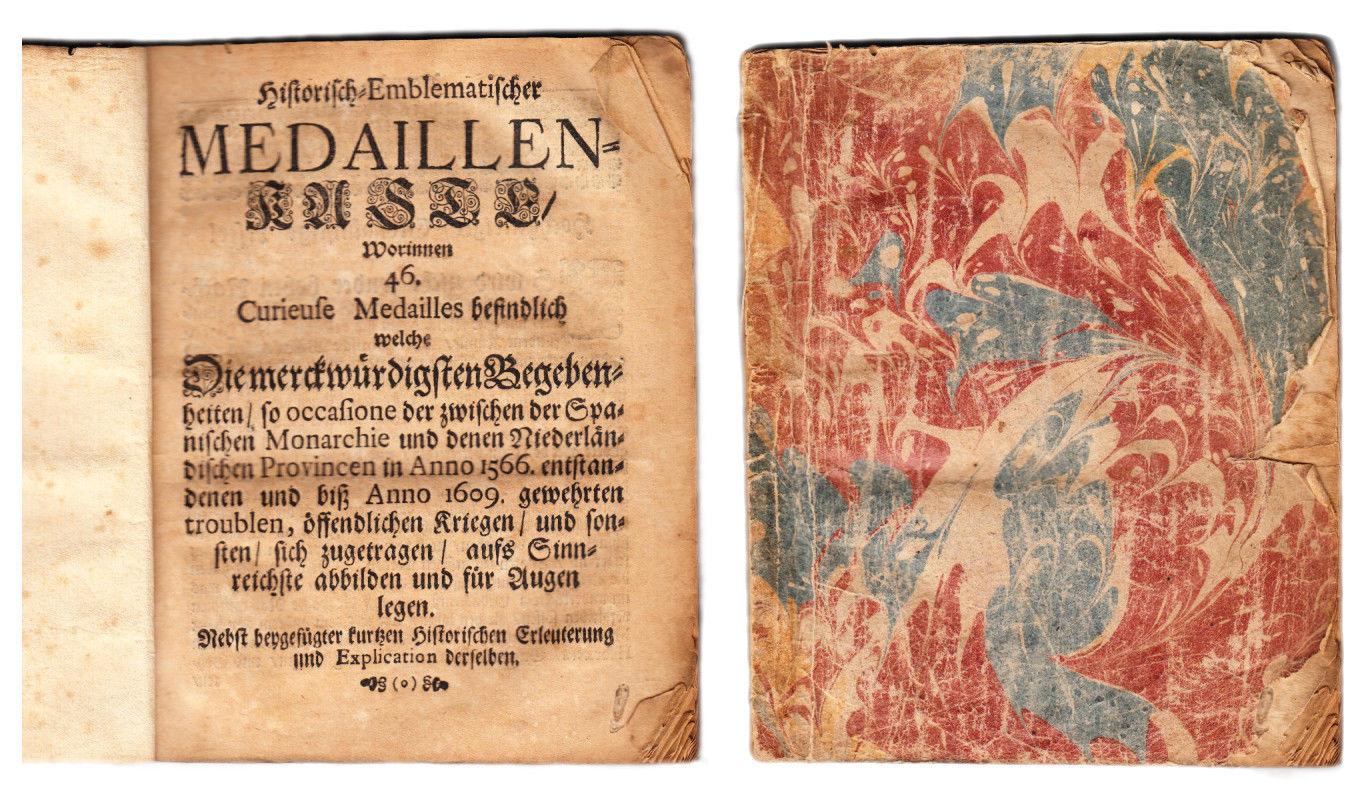 Historisch-Emblematischer
MEDAILLEN-
KASTE/
Worinnen
46.
Curieuse Medailles befindlich
welche
Die merckwürdigsten Begeben-
heiten/ so occasione der zwischen der Spa-
nischen Monarchie und denen Niederlän-
dischen Provincen in Anno 1566. entstan-
denen und biß Anno 1609. gewehrten
troublen, öffendlichen Kriegen/ und son-
sten/ sich zugetragen/ aufs Sinn-
reichste abbilden und für Augen
legen.
Nebst beygefügter kurtzen Historischen Erleuterung
und Explication derselben.
(o)